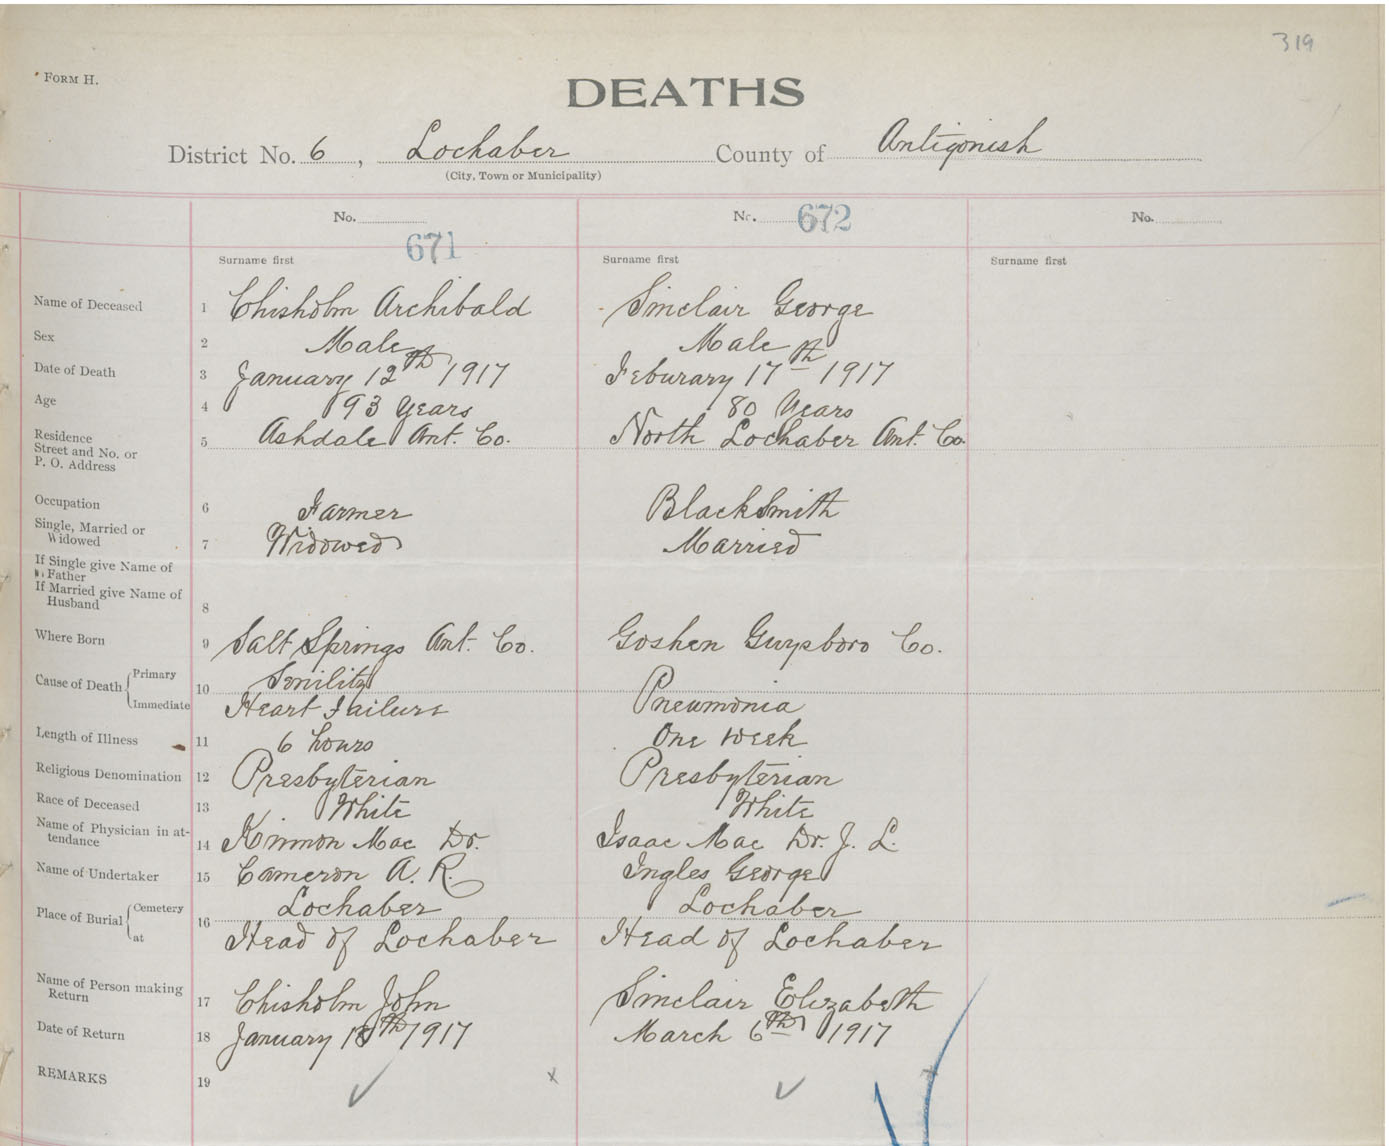 319
FORM H.
DEATHS
District No. 6, Lochaber County of Antigonish
(City, Town or Municipality)
No. No. 672 No.
671
Surname first Surname first Surname first
Name of Deceased 1 Chisholm Archibald Sinclair George
Sex 2 Male Male
Date of Death 3 January 12th 1917 Feburary 17th 1917
Age 4 93 Years 80 Years
Residence Street and No. or P. O. Address 5 Ashdale Ant. Co. North Lochaber Ant. Co
Occupation 6 Farmer Blacksmith
Single, Married or Widowed 7 Widowed Married
If Single give Name of Father
If Married give Name of Husband 8
Where Born 9 Salt Springs Ant. Co. Goshen Guysboro Co.
Cause of Death Primary 10 Senility Pneumonia
Immediate Heart Failure
Length of Illness 11 6 hours One week
Religious Denomination 12 Presbyterian Presbyterian
Race of Deceased 13 White White
Name of Physician in attendance 14 Kinnon Mac Dr. Isaac Mac Dr. J. L.
Name of Undertaker 15 Cameron A. R. Ingles George
Place of Burial Cemetery 16 Lochaber Lochaber
at Head of Lochaber Head of Lochaber
Name of Person making Return 17 Chisholm John Sinclair Elizabeth
Date of Return 18 January th 1917 March 6th 1917
REMARKS 19